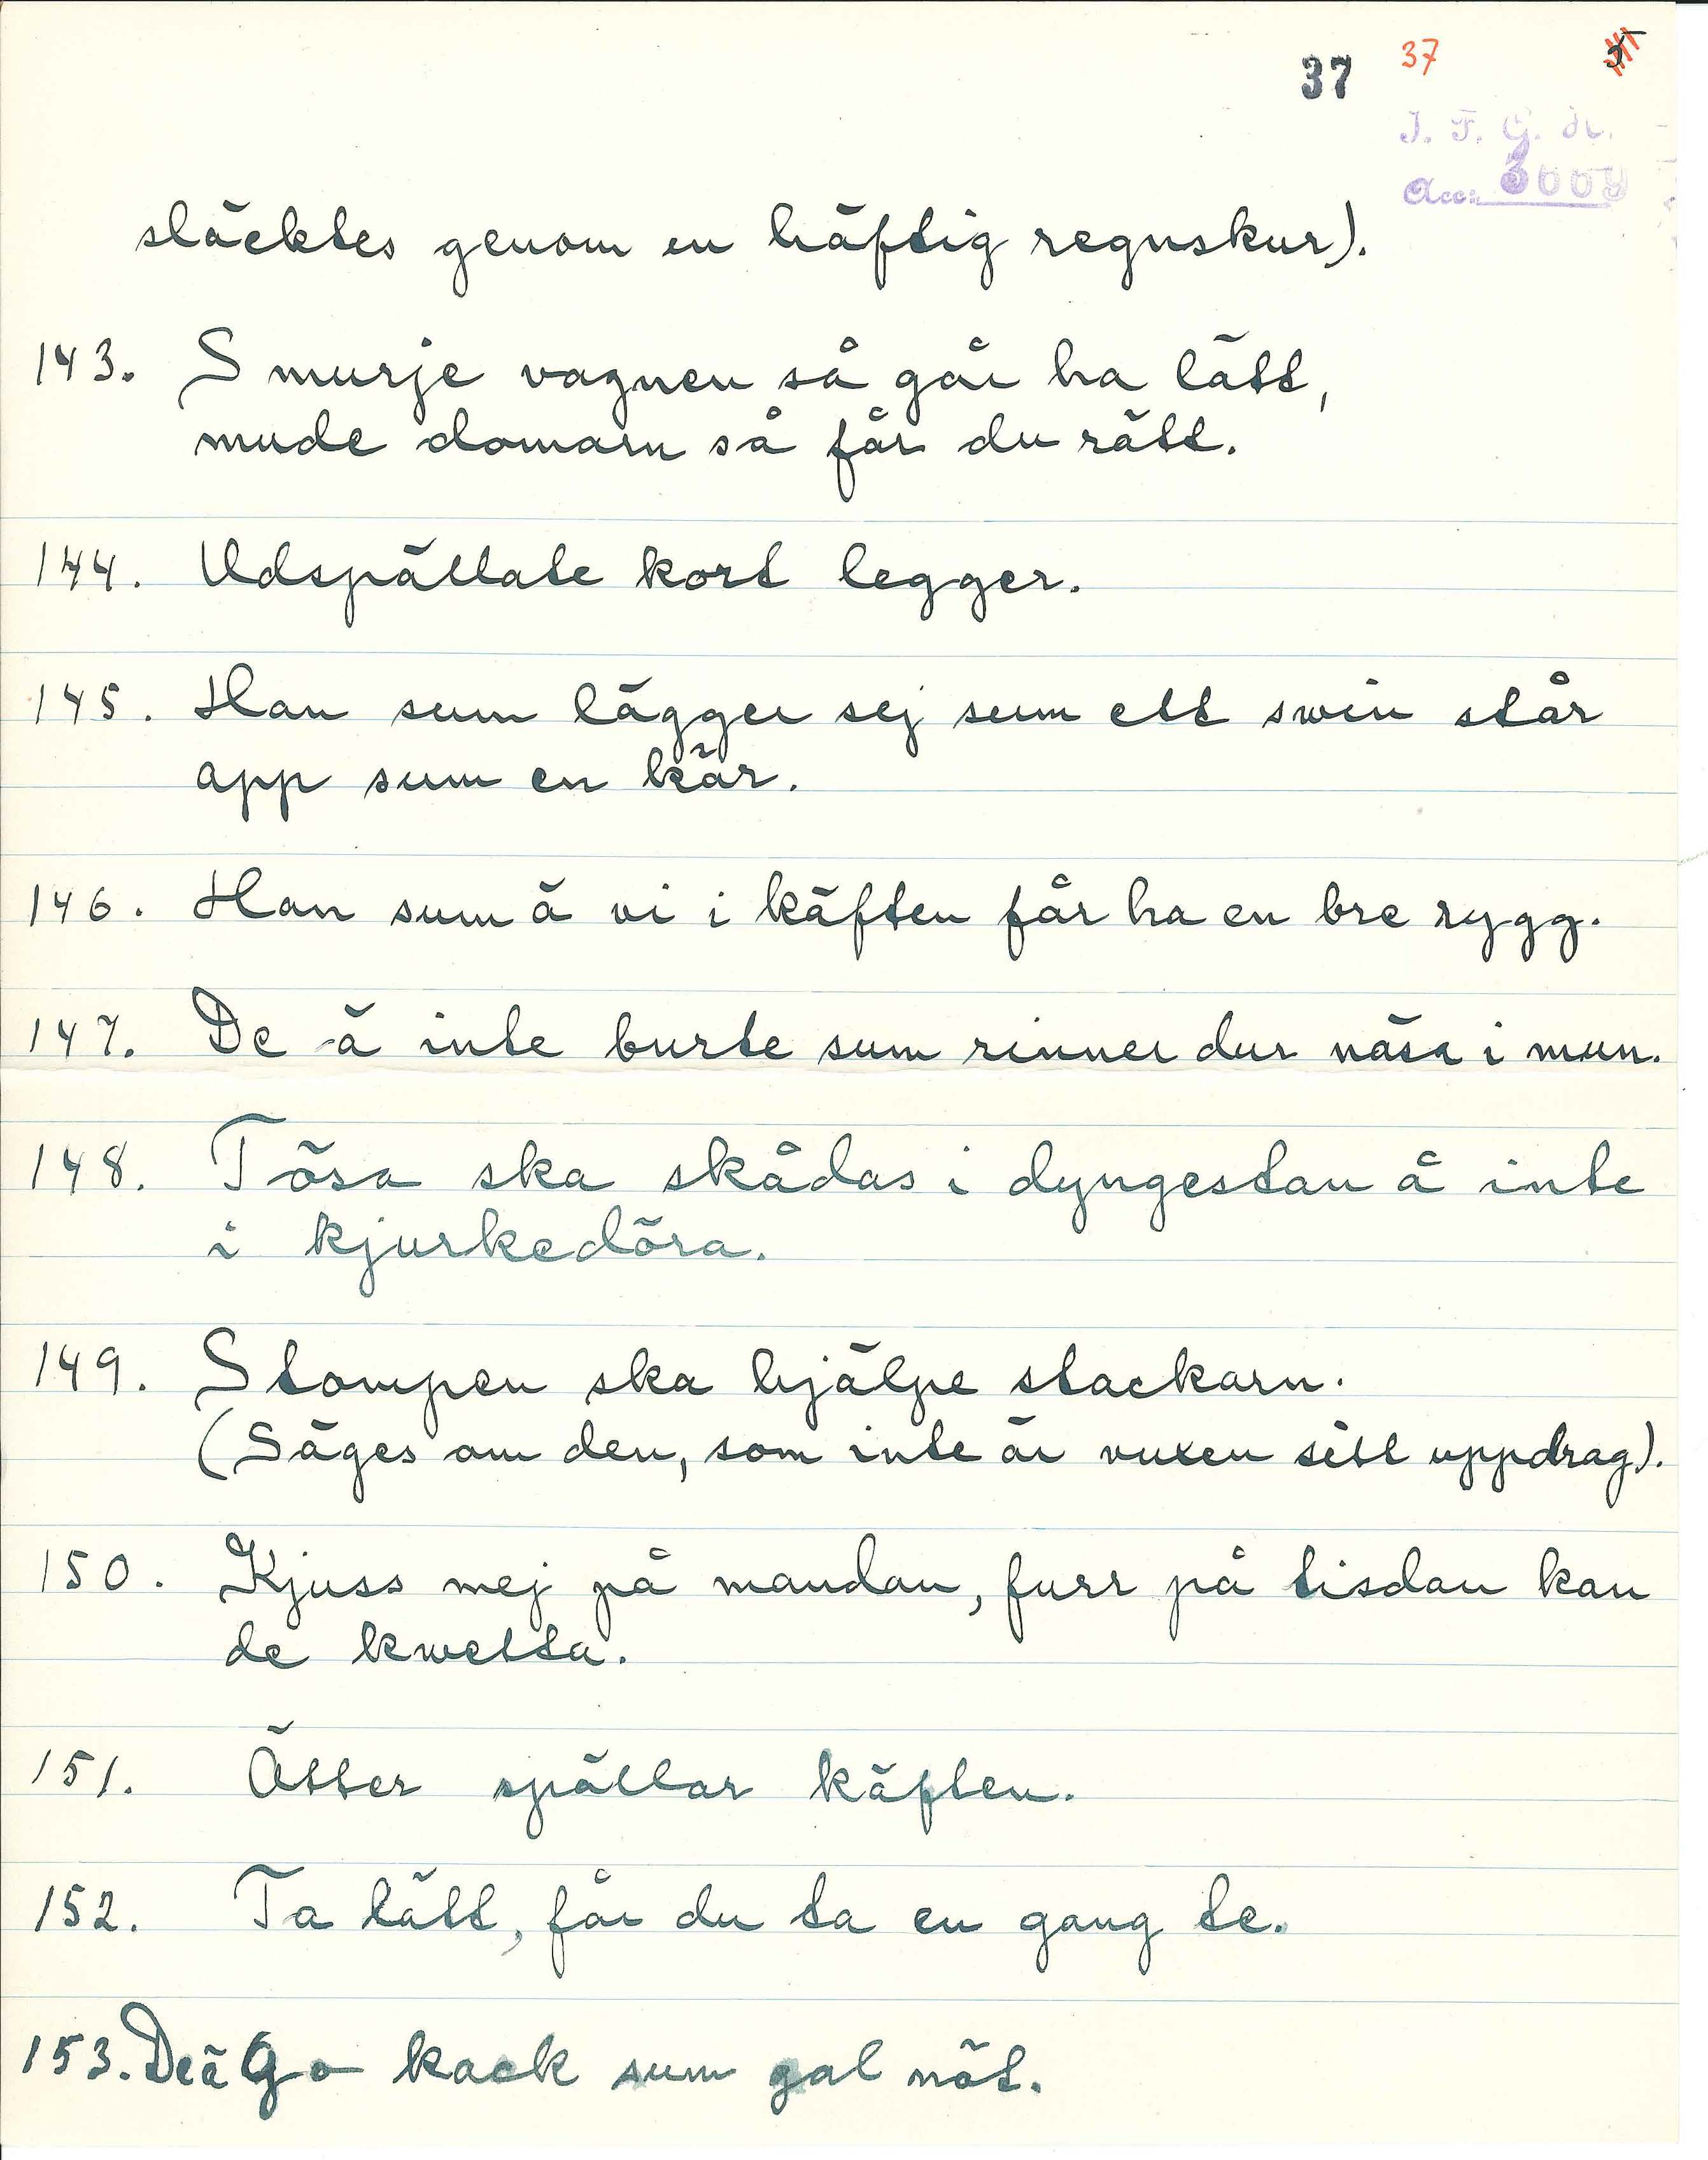 37 37
I. F. G. nr.
Acc: 3669
släcktes genom en häftig regnskur).
143. Smurje vagnen så går ha lätt,
mude domarn så får du rätt.
144. Udspällate kort legger.
145. Han sum lägger sej sum ett swin står
app sum en kär.
146. Han sum ä vi i käften får ha en bre rygg.
147. De ä inte burte sum rinner dur näsa i mun.
148. Tösa ska skådas i dyngestan å inte
i kjurkedöra.
149. Stompen ska hjälpe stackarn.
(Säges om den, som inte är vuxen sitt uppdrag).
150. Kjuss mej på mandan, furr på tisdan kan
de kwetta.
151. Ätter spällar käften.
152. Ta lätt, får du ta en gang te.
153. De ä Go kack sum gal nöt.